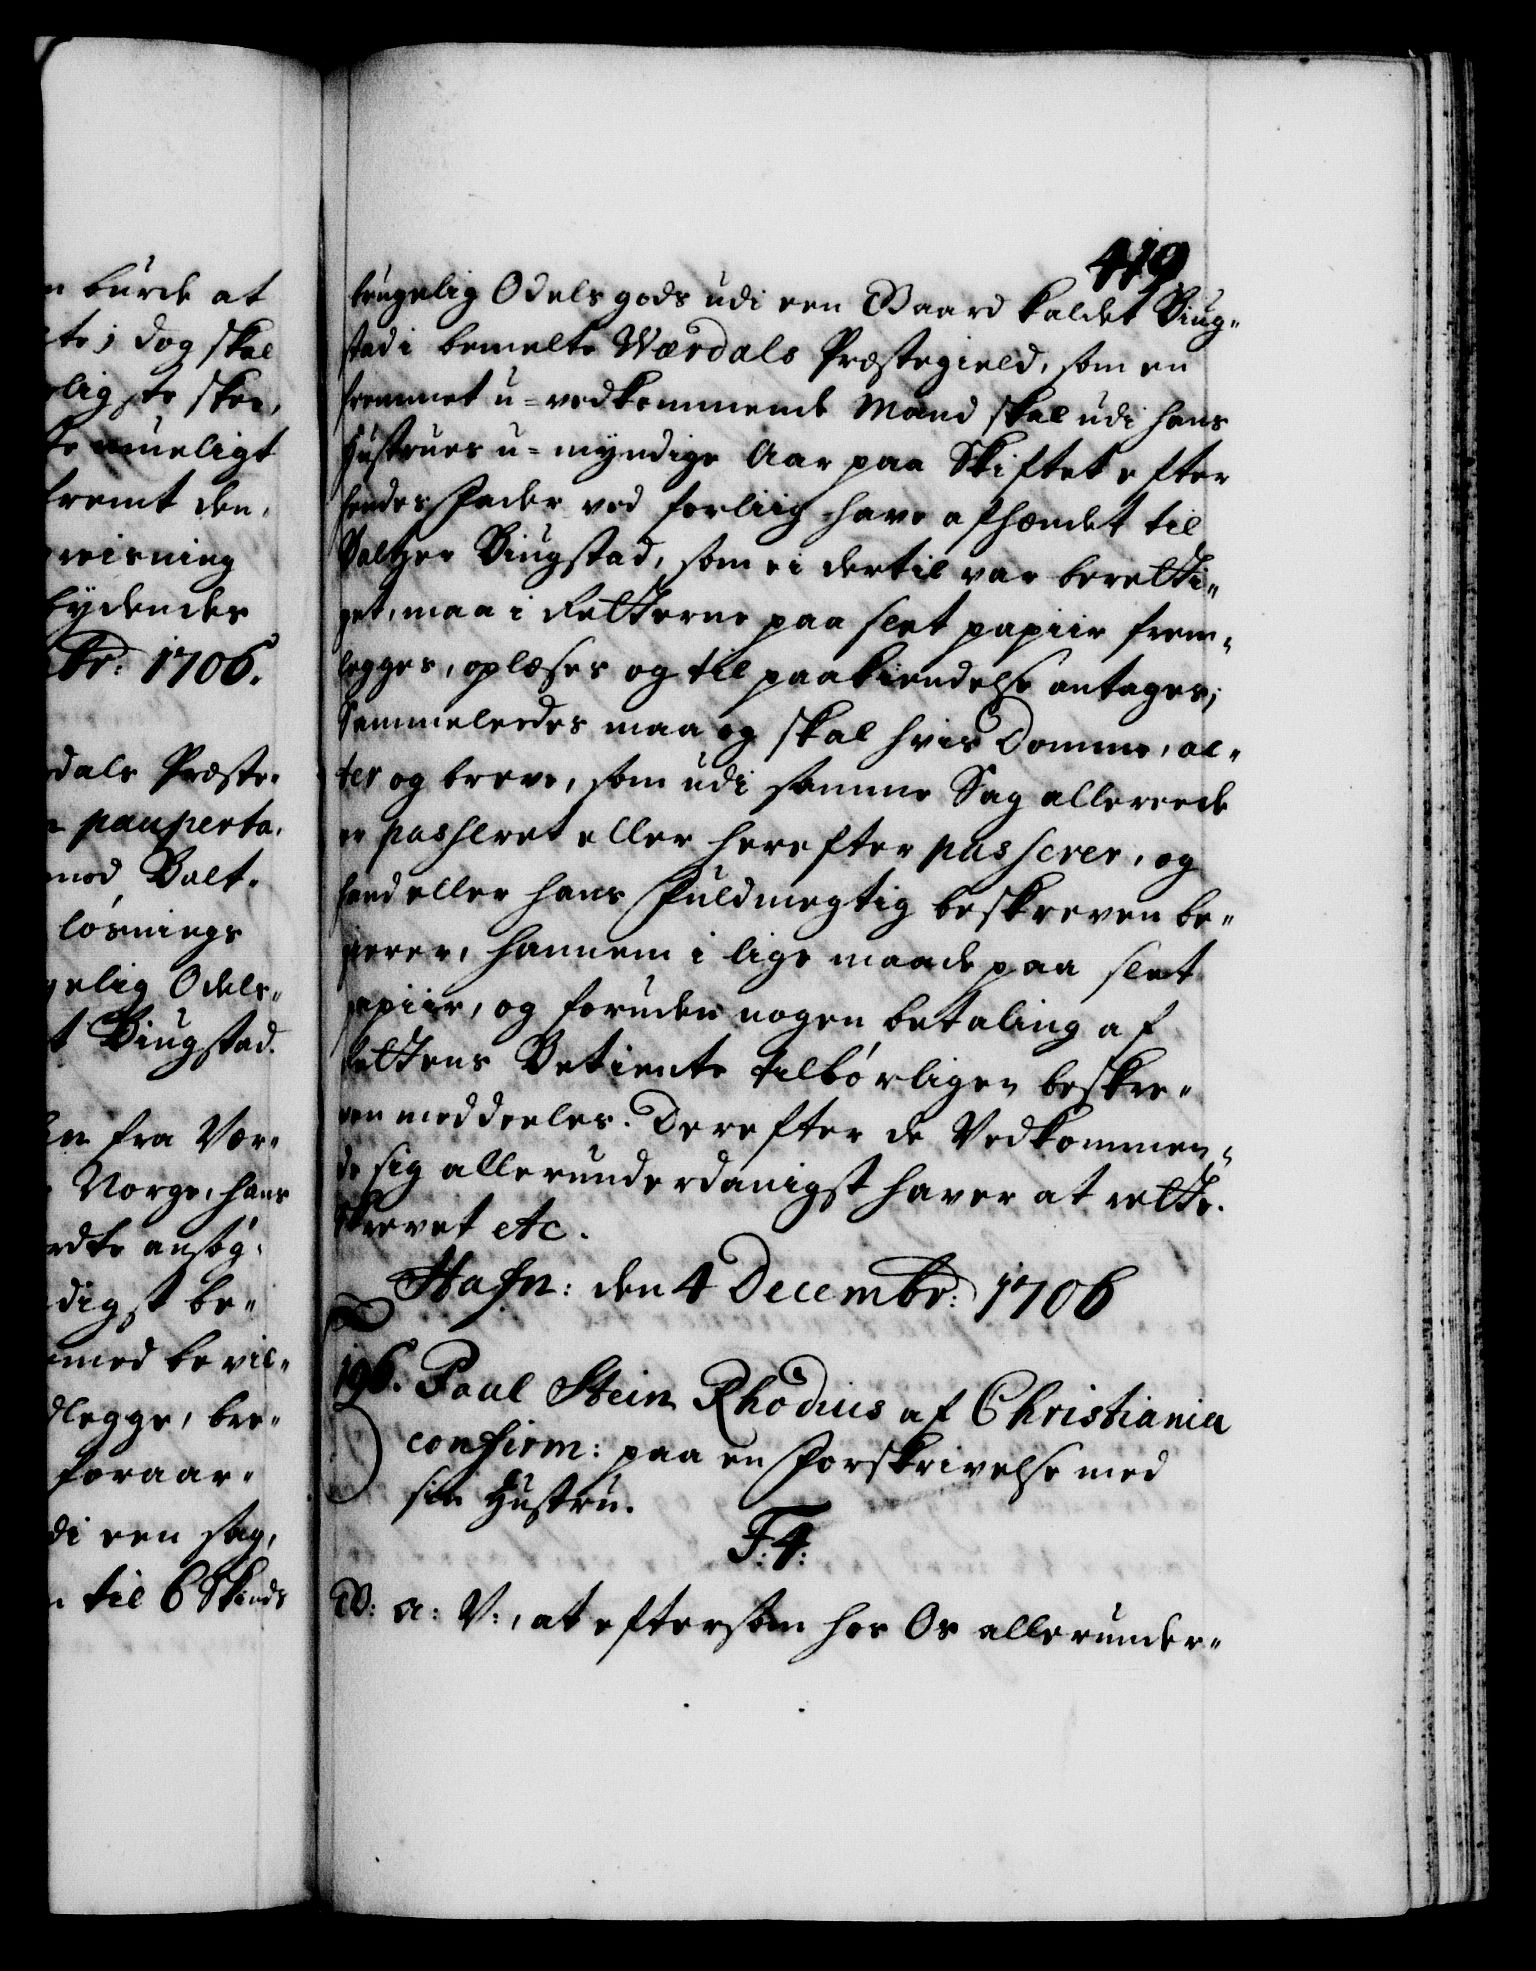 n burde at
te; dog skal
ligste skee,
te mueligt
fremt den,
viisning
lydendes
br: 1706.
dals Præste-
pauperta-
mod Balt-
løsnings
gelig Odels-
t Biugstad.
fra Vær-
Norge, hans
ansøg-
digst be-
med bevil-
dlegge, bre-
foraar-
di een sag,
til 6 Skinds
419
brugelig Odels gods udi een Gaard kaldet Biug-
stad i bemelte Wærdals Præstegield, som en
fremmet u-vedkommende Mand skal udi hans
Hustrues u-myndige Aar paa Skiftet efter
hendes Fader ved forliig have afhændet til
Baltzer Biugstad, som ei dertil var beretti-
get, maa i Retterne paa slet papiir frem-
legges, oplæses og til paakiendelse antages;
Sammeledes maa og skal hvis Domme, ac-
ter og breve, som udi samme Sag allereede
er passeret eller herefter passerer, og
hand eller hans Fuldmegtig beskreven be-
gierer, hannem i lige maade paa slet
papiir, og foruden nogen betaling af
Rettens Betiente tilbørligen beskre-
ven meddeeles. Derefter de Vedkommen-
de sig allerunderdanigst haver at rette.
Skrevet etc.
Hafn: den 4 Decembr: 1706
196. Paul Stein Rhodius af Christiania
confirm: paa en Forskrivelse med
sin Hustru.
F: 4:
G: A: V:, at eftersom hos Os allerunder-